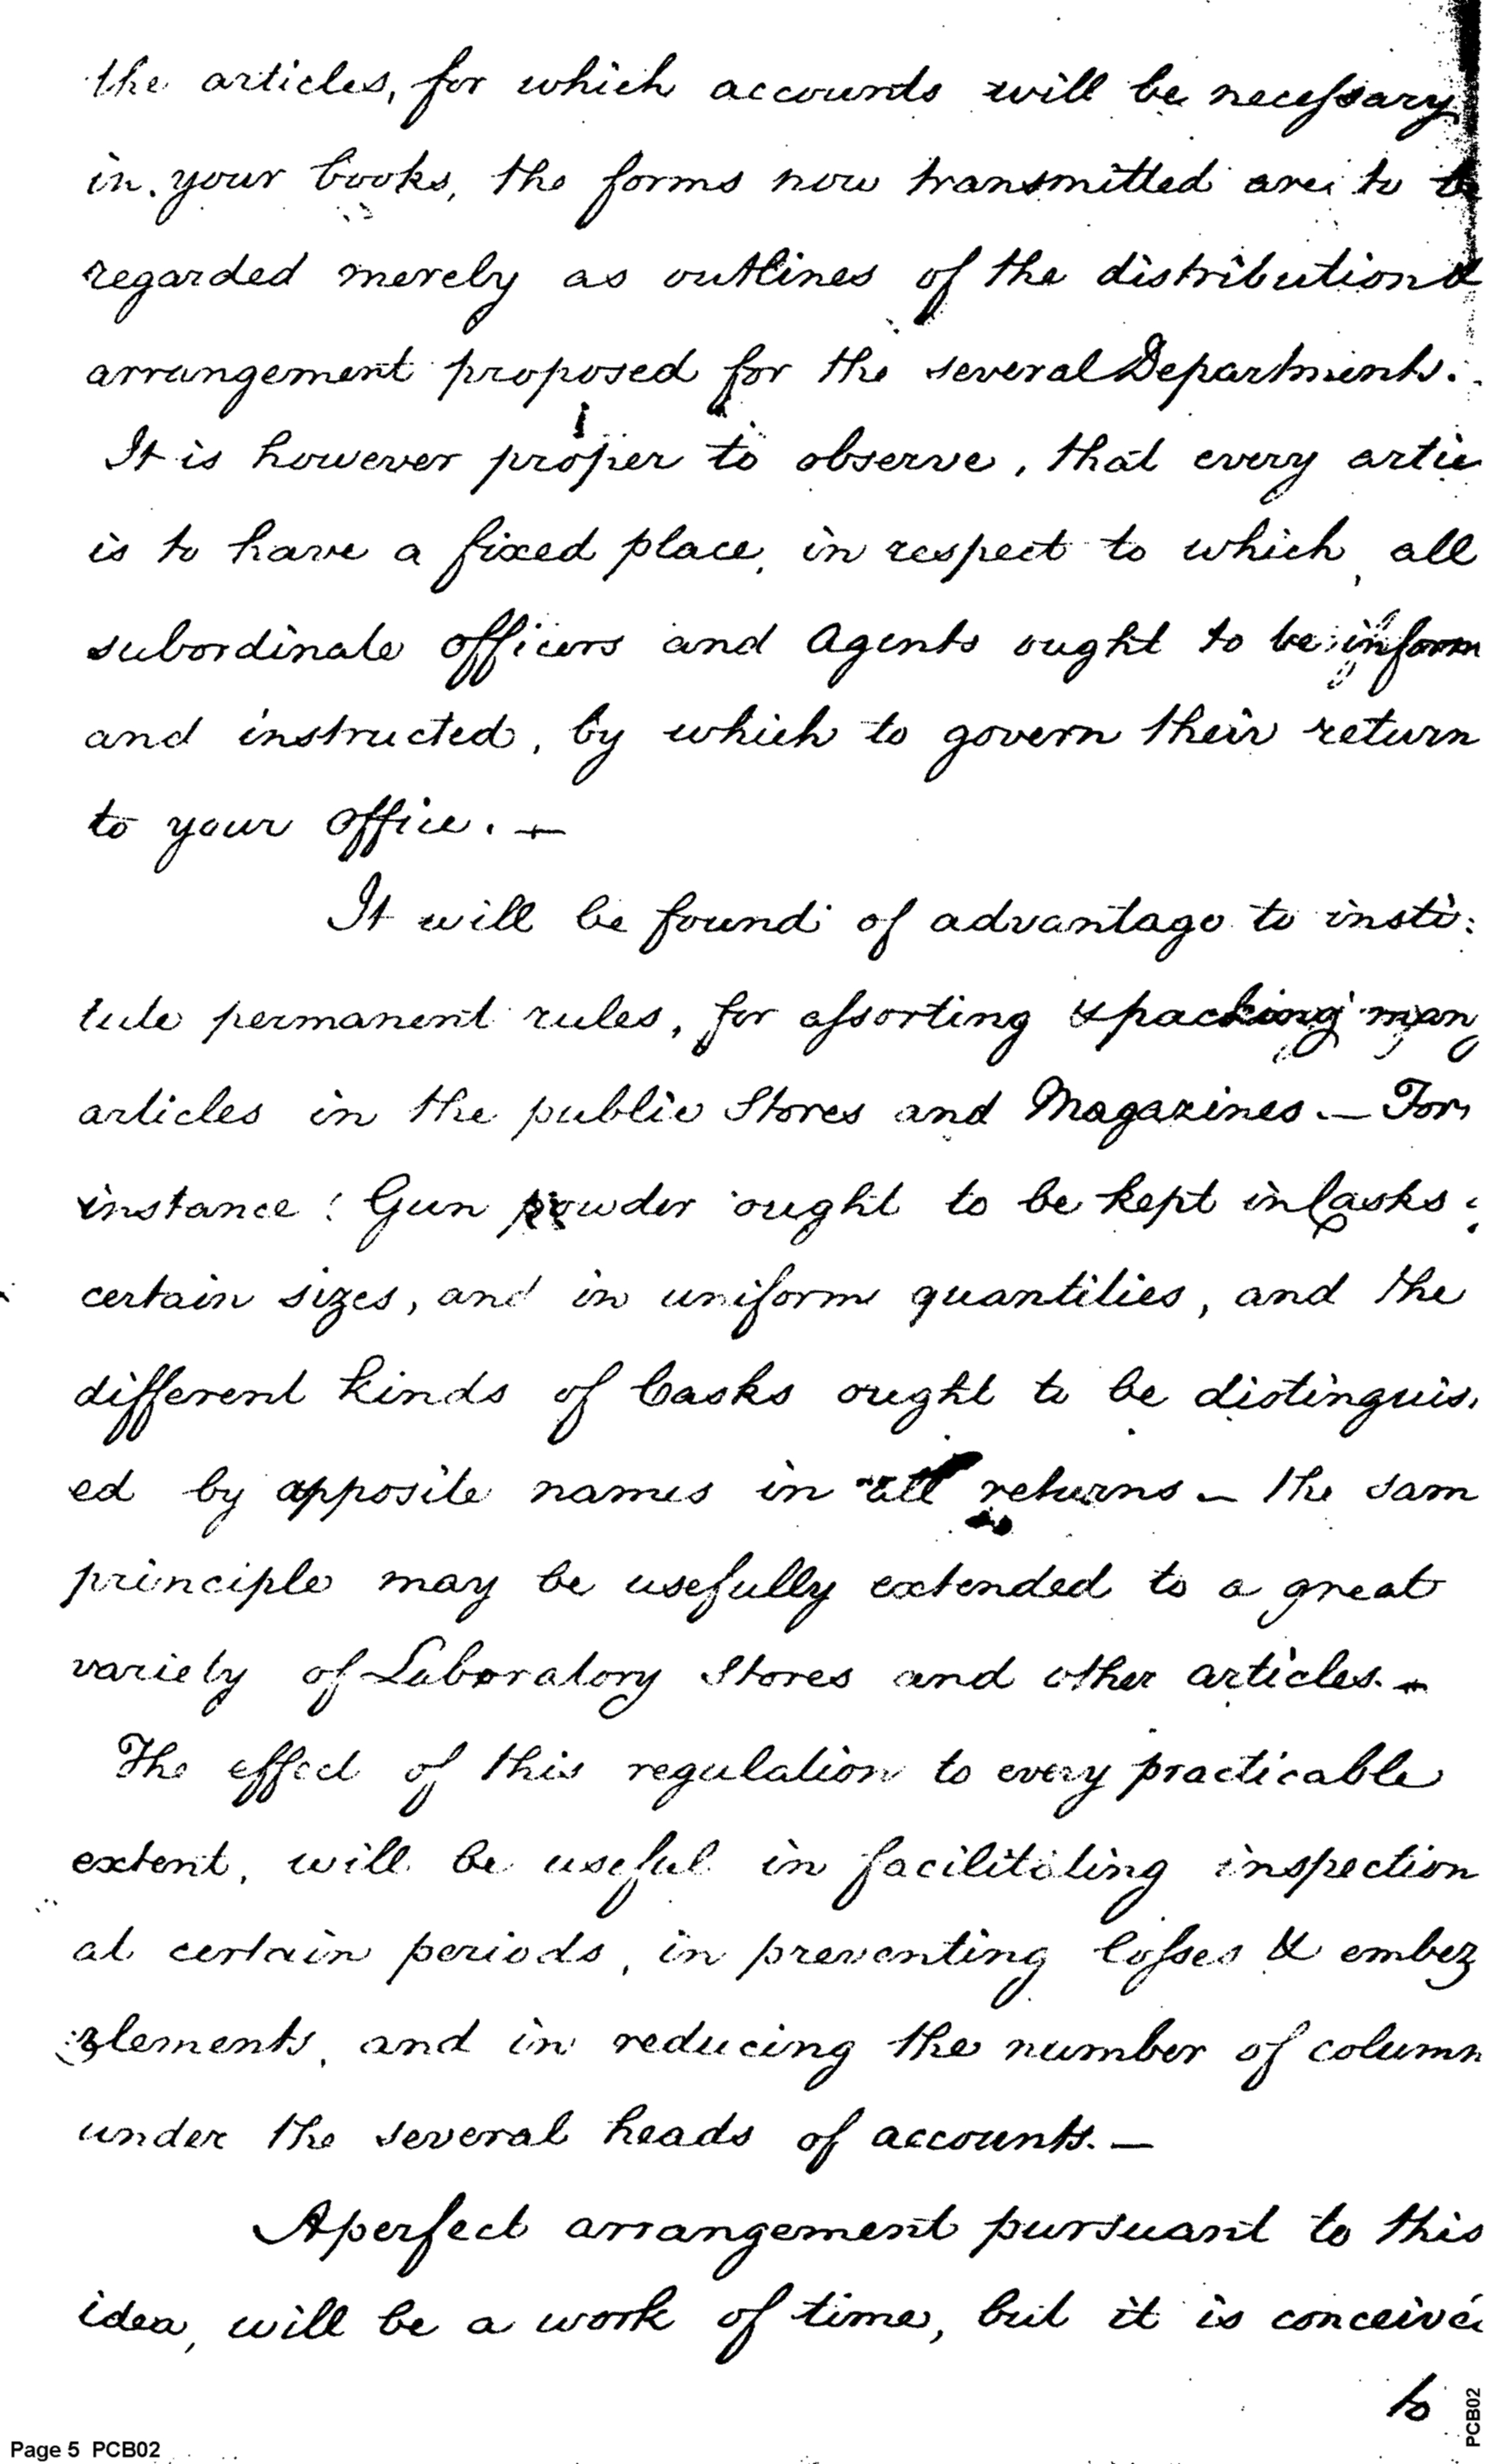 the articles, for which accounts will be necessary
in your books, the forms now transmitted are to
regarded merely as outlines of the distribution &
arrangement proposed for the several Departments.
It is however proper to observe, that every artic
is to have a fixed place, in respect to which, all
subordinate officers and Agents ought to be inform
and instructed, by which to govern their return
to your office. —
It will be found of advantage to insti:
tute permanent rules, for assorting & packing many
articles in the public Stores and Magazines. — For
instance: Gun powder ought to be kept in Casks
certain sizes, and in uniform quantities, and the
different kinds of Casks ought to be distinguis
ed by apposite names in all returns — the sam
principle may be usefully extended to a great
variety of Laboratory Stores and other articles. —
The effect of this regulation to every practicable
extent, will be useful in facilitating inspection
at certain periods, in preventing losses & embez
:zlements, and in reducing the number of column
under the several heads of accounts. —
A perfect arrangement pursuant to this
idea, will be a work of time, but it is conceive
to
PCB02
Page 5 PCB02